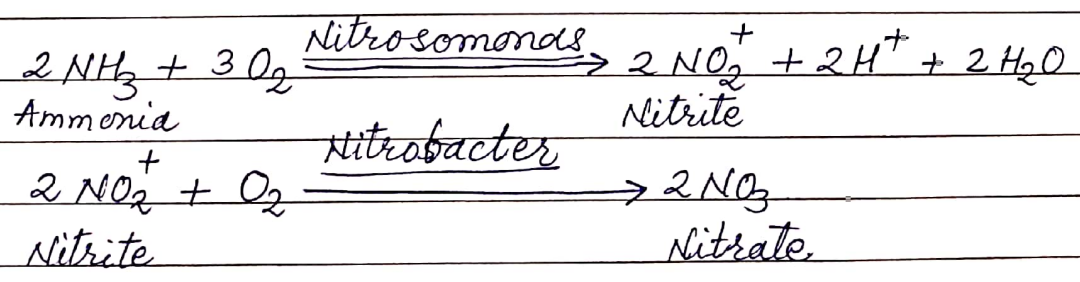 2 NH₃ + 3 O₂ Nitrosomonas → 2 NO₂⁺ + 2 H⁺ + 2 H₂O
Ammonia Nitrite
2 NO₂⁺ + O₂ Nitrobacter → 2 NO₃
Nitrite Nitrate.